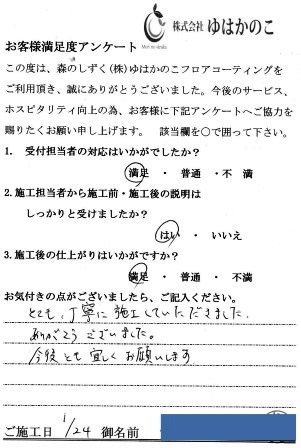 株式会社 ゆはかのこ
お客様満足度アンケート
この度は、森のしずく(株)ゆはかのこフロアコーティングを
ご利用頂き、誠にありがとうございました。今後のサービス、
ホスピタリティ向上の為、お客様に下記アンケートへご協力を
賜りたくお願い申し上げます。 該当欄を○で囲って下さい。
1. 受付担当者の対応はいかがでしたか?
満足 ・ 普通 ・ 不満
2.施工担当者から施工前・施工後の説明は
しっかりと受けましたか?
はい ・ いいえ
3.施工後の仕上がりはいかがですか?
満足 ・ 普通 ・ 不満
お気付きの点がございましたら、ご記入ください。
とても丁寧に施工していただきました。
ありがとうございました。
今後とも宜しくお願いします
ご施工日 1/24 御名前